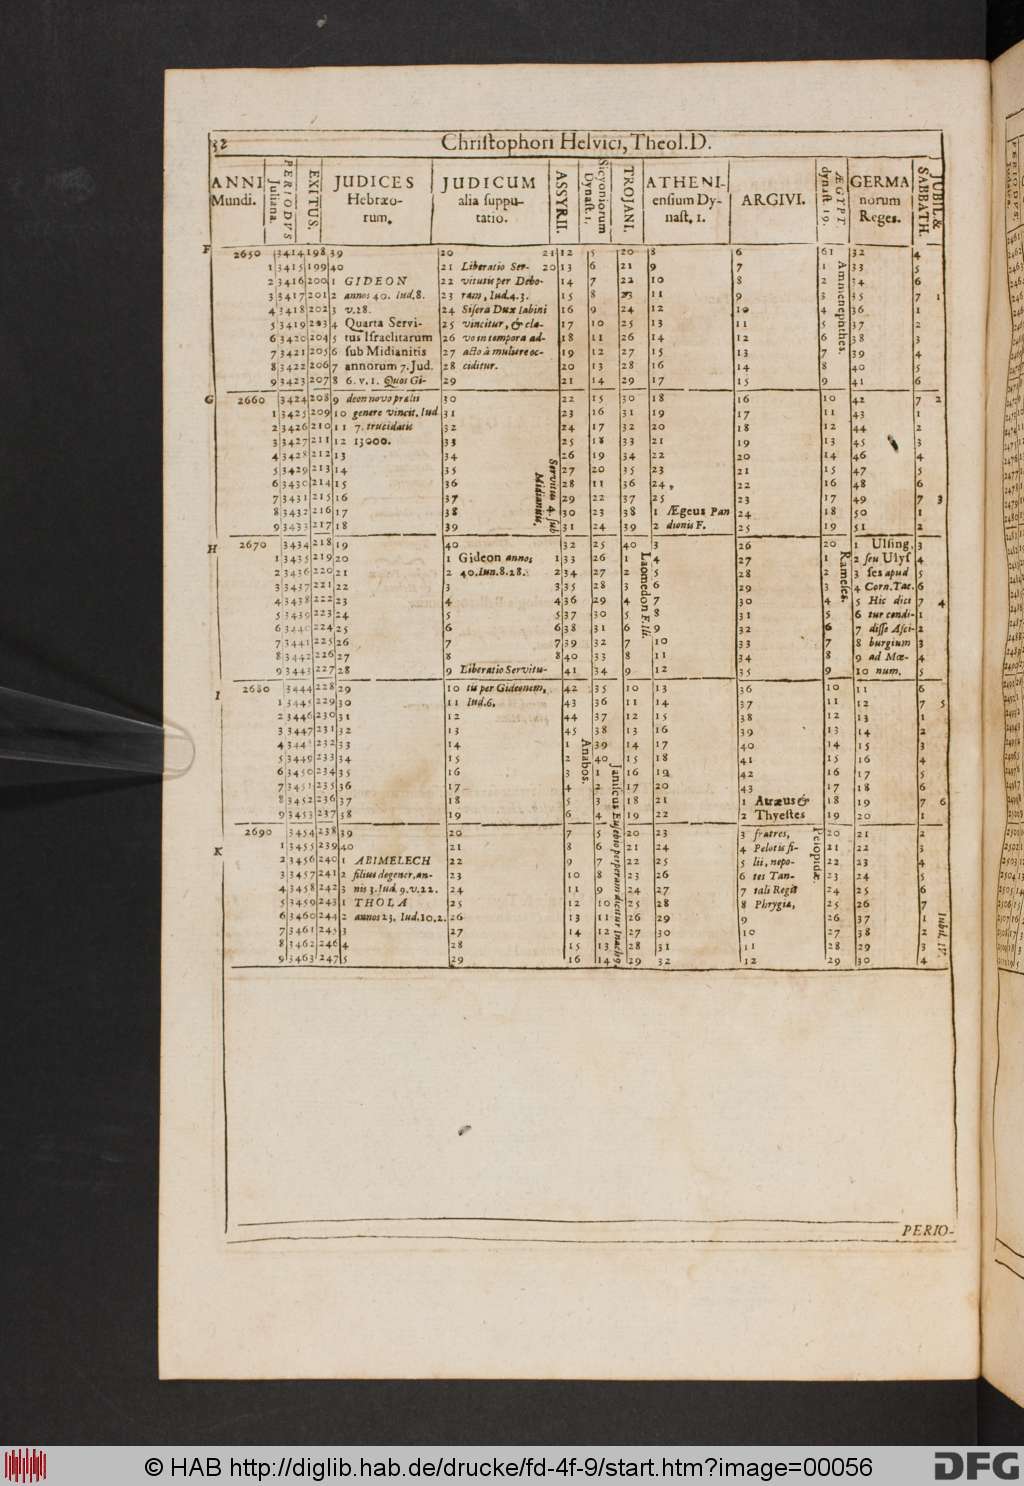 32 Christophori Helvici, Theol. D.
ANNI Mundi. PERIODVS Juliana. EXITUS. JUDICES Hebræorum. JUDICUM alia supputatio. ASSYRII. Sicyoniorum Dynast. 1. TROJANI. ATHENIensium Dynast. 1. ARGIVI. ÆGYPT. dynast 19. GERMAnorum Reges. JUBIL. & SABBATH.
F 2650 3414 198 39 20 21 12 5 20 8 6 61 32 4
1 3415 199 40 21 Liberatio Ser- 20 13 6 21 9 7 1 Ammenephthes. 33 5
2 3416 200 1 GIDEON 22 vitutis per Debo- 14 7 22 10 8 2 34 6
3 3417 201 2 annos 40. Iud. 8. 23 ram, Iud. 4.3. 15 8 23 11 9 3 35 7 1
4 3418 202 3 v. 28. 24 Sisera Dux Iabini 16 9 24 12 10 4 36 1
5 3419 203 4 Quarta Servi- 25 vincitur, & cla- 17 10 25 13 11 5 37 2
6 3420 204 5 tus Israelitarum 26 vo in tempora ad- 18 11 26 14 12 6 38 3
7 3421 205 6 sub Midianitis 27 acto à muliere oc- 19 12 27 15 13 7 39 4
8 3422 206 7 annorum 7. Jud. 28 ciditur. 20 13 28 16 14 8 40 5
9 3423 207 8 6. v. 1. Quos Gi- 29 21 14 29 17 15 9 41 6
G 2660 3424 208 9 deon novo prælii 30 22 15 30 18 16 10 42 7 2
1 3425 209 10 genere vincit. Iud 31 23 16 31 19 17 11 43 1
2 3426 210 11 7. trucidatis 32 24 17 32 20 18 12 44 2
3 3427 211 12 13000. 33 25 18 33 21 19 13 45 3
4 3428 212 13 34 Servitus 4. sub Midianitis. 26 19 34 22 20 14 46 4
5 3429 213 14 35 27 20 35 23 21 15 47 5
6 3430 214 15 36 28 11 36 24, 22 16 48 6
7 3431 215 16 37 29 22 37 25 23 17 49 7 3
8 3432 216 17 38 30 23 38 1 Ægeus Pan 24 18 50 1
9 3433 217 18 39 31 24 39 2 dionis F. 25 19 51 2
H 2670 3434 218 19 40 32 25 40 3 26 20 1 Ulsing, 3
1 3435 219 20 1 Gideon annos 1 33 26 1 Laomedon Ili fil. 4 27 1 Rameses. 2 seu Ulys 4
2 3436 220 21 2 40. Iun. 8. 28. 2 34 27 2 5 28 2 3 ses apud 5
3 3437 221 22 3 3 35 28 3 6 29 3 4 Corn. Tac. 6
4 3438 222 23 4 4 36 29 4 7 30 4 5 Hic dici 7 4
5 3439 223 24 5 5 37 30 5 8 31 5 6 tur condi- 1
6 3440 224 25 6 6 38 31 6 9 32 6 7 disse Asci- 2
7 3441 225 26 7 7 39 32 7 10 33 7 8 burgium 3
8 3442 226 27 8 8 40 33 8 11 34 8 9 ad Mœ- 4
9 3443 227 28 9 Liberatio Servitu- 41 34 9 12 35 9 10 num. 5
I 2680 3444 228 29 10 tis per Gideonem, 42 35 10 13 36 10 11 6
1 3445 229 30 11 Iud. 6. 43 36 11 14 37 11 12 7 5
2 3446 230 31 12 44 37 12 15 38 12 13 1
3 3447 231 32 13 45 38 13 16 39 13 14 2
4 3448 232 33 14 1 Anabos. 39 14 17 40 14 15 3
5 3449 233 34 15 2 40 15 18 41 15 16 4
6 3450 234 35 16 3 1 Janiscus Eusebio perperam dicitur Inachus. 16 19 42 16 17 5
7 3451 235 36 17 4 2 17 20 43 17 18 6
8 3452 236 37 18 5 3 18 21 1 Atræus & 18 19 7 6
9 3453 237 38 19 6 4 19 22 2 Thyestes 19 20 1
K 2690 3454 238 39 20 7 5 20 23 3 fratres, Pelopidæ. 20 21 2
1 3455 239 40 21 8 6 21 24 4 Pelopis fi- 21 22 3
2 3456 240 1 ABIMELECH 22 9 7 22 25 5 lii, nepo- 22 23 4
3 3457 241 2 filius degener, an- 23 10 8 23 26 6 tes Tan- 23 24 5
4 3458 242 3 nis 3. Jud. 9. v. 22. 24 11 9 24 27 7 tali Regis 24 25 6
5 3459 243 1 THOLA 25 12 10 25 28 8 Phrygiæ, 25 26 7
6 3460 244 2 annos 23. Iud. 10.2. 26 13 11 26 29 9 26 37 1 Iubil. IV.
7 3461 245 3 27 14 12 27 30 10 27 38 2
8 3462 246 4 28 15 13 28 31 11 28 29 3
9 3463 247 5 29 16 14 29 32 12 29 30 4
PERIO-
© HAB http://diglib.hab.de/drucke/fd-4f-9/start.htm?image=00056
DFG